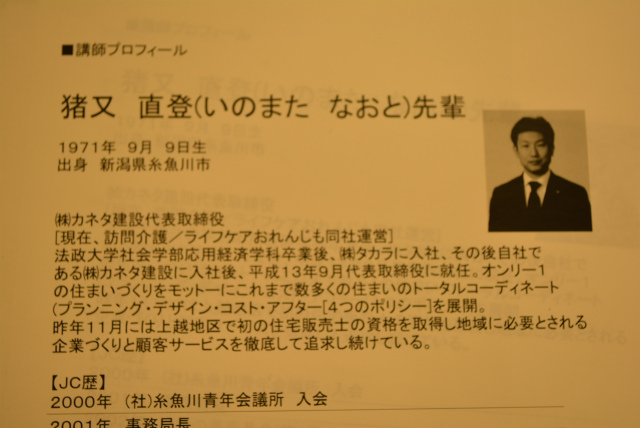 ■講師プロフィール
猪又　直登(いのまた　なおと)先輩
1971年 9月 9日生
出身 新潟県糸魚川市
㈱カネタ建設代表取締役
[現在、訪問介護／ライフケアおれんじも同社運営]
法政大学社会学部応用経済学科卒業後、㈱タカラに入社、その後自社で
ある㈱カネタ建設に入社後、平成13年9月代表取締役に就任。オンリー1
の住まいづくりをモットーにこれまで数多くの住まいのトータルコーディネート
(プランニング・デザイン・コスト・アフター[4つのポリシー]を展開。
昨年11月には上越地区で初の住宅販売士の資格を取得し地域に必要とされる
企業づくりと顧客サービスを徹底して追求し続けている。
【JC歴】
2000年 (社)糸魚川青年会議所 入会
2001年 事務局長